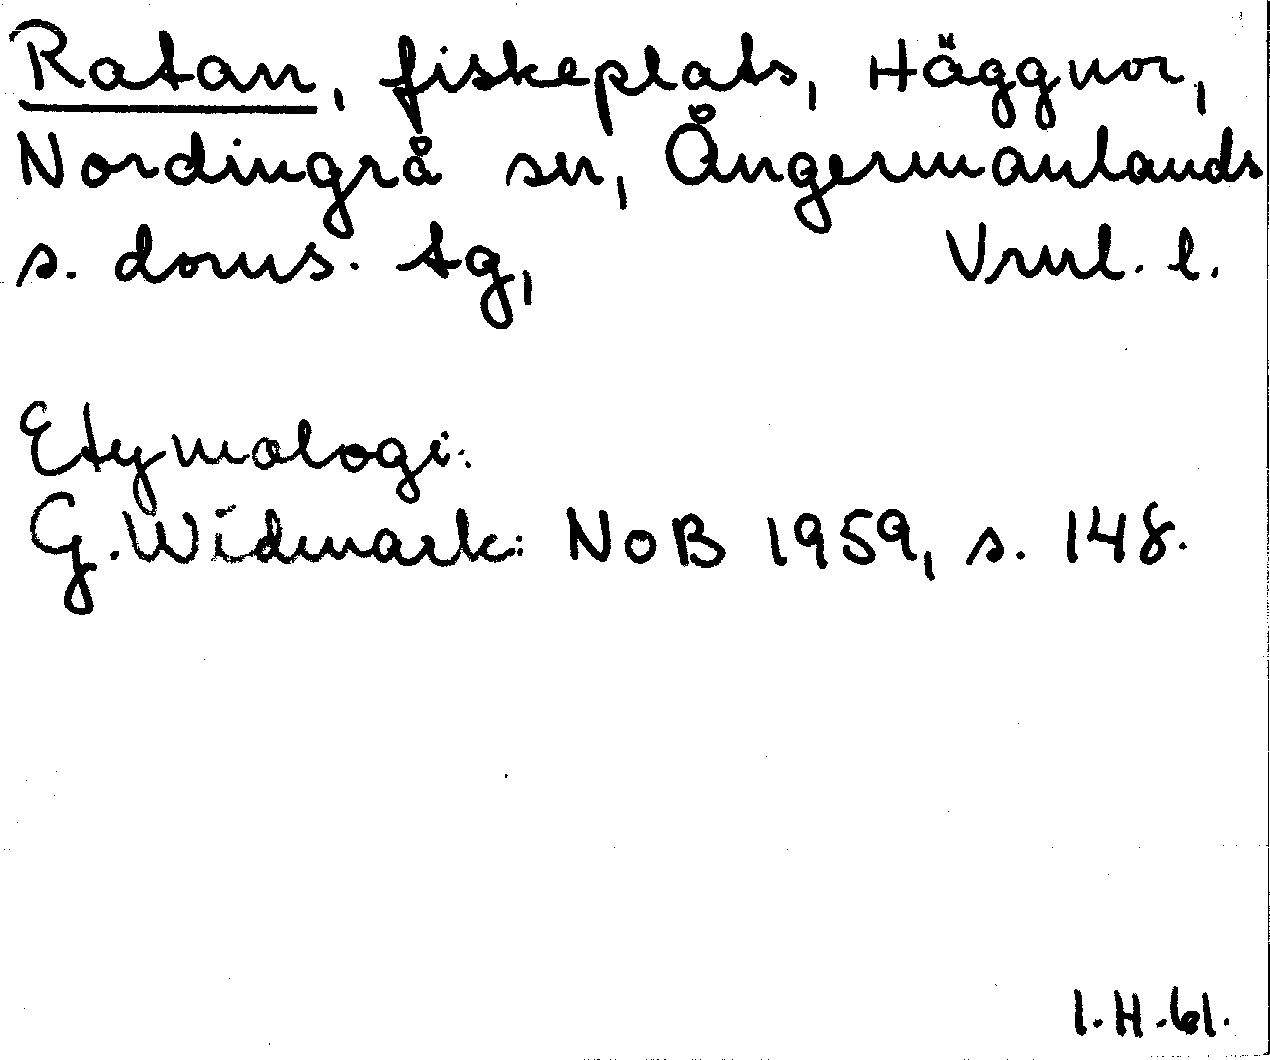 Ratan, fiskeplats, Häggnor,
Nordingrå sn, Ångermanlands
s. doms. tg, Vrnl. l.
Etymologi:
G. Widmark: NoB 1959, s. 148.
I.H.61.